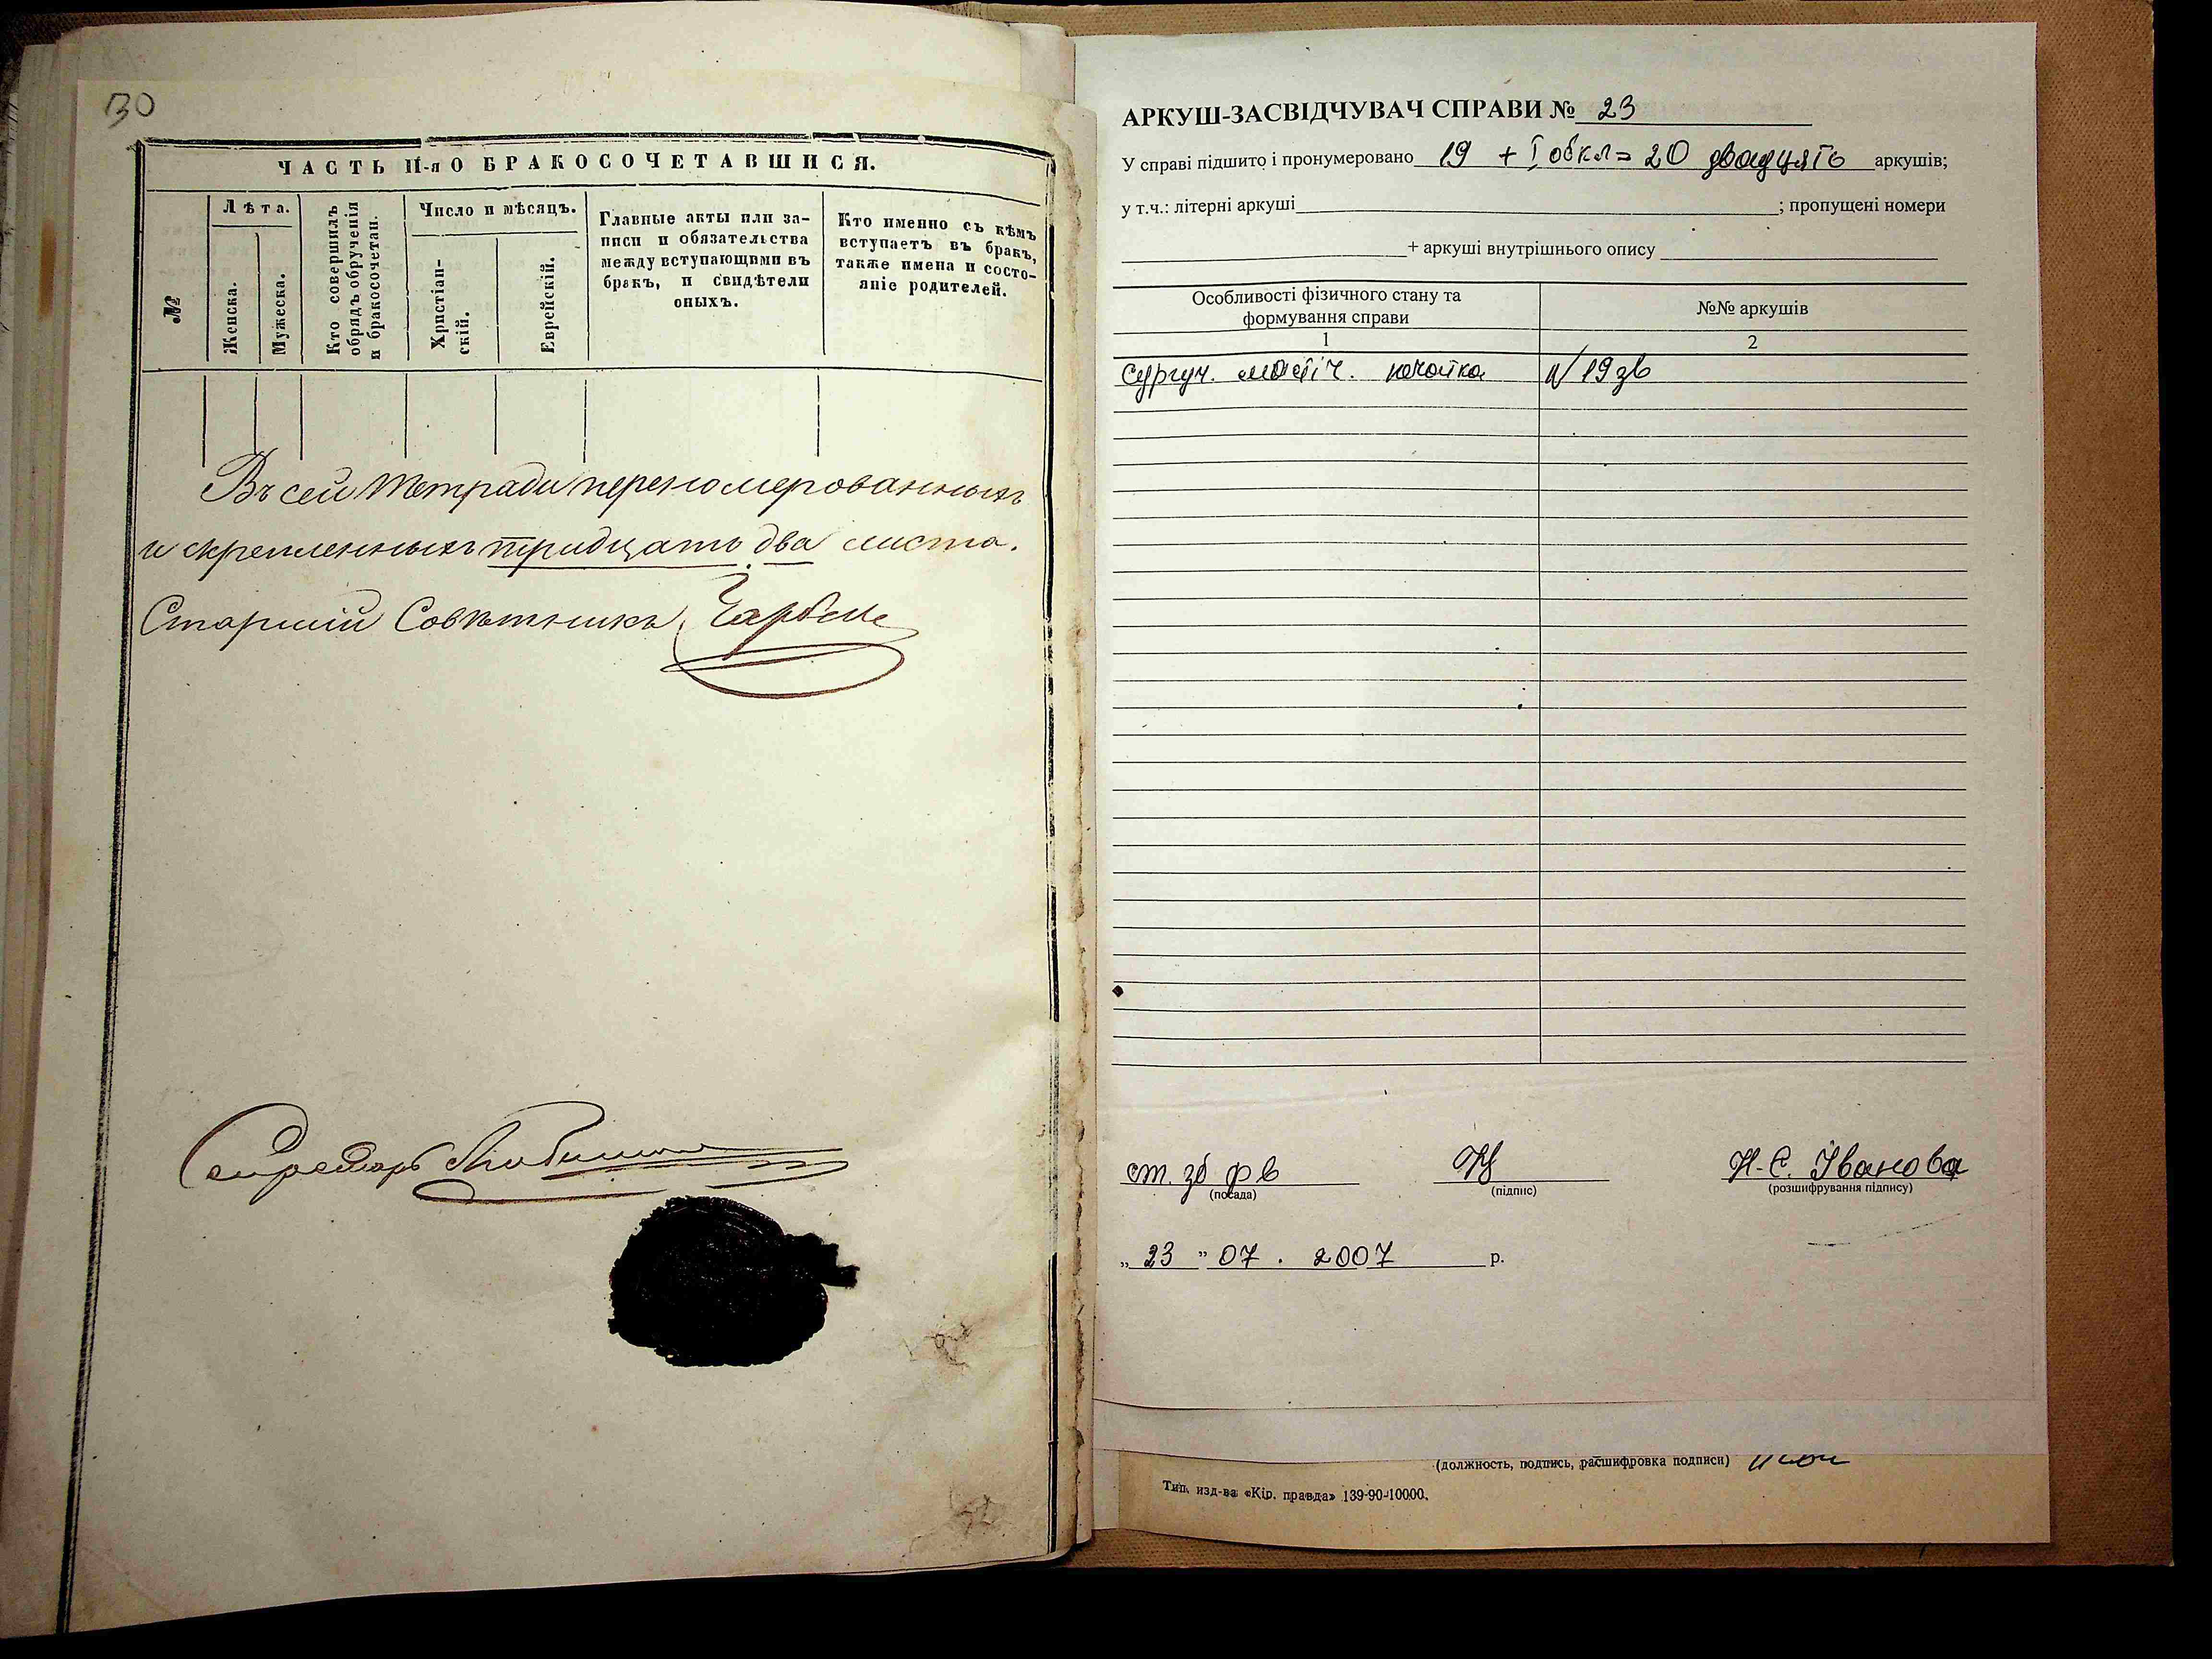 30
ЧАСТЬ II-я О БРАКОСОЧЕТАВШИСЯ.
№
Лѣта.
Женска.
Мужеска.
Кто совершилъ
обрядъ обрученія
и бракосочетан.
Число и мѣсяцъ.
Христіан-
скій.
Еврейскій.
Главные акты или за-
писи и обязательства
между вступающими въ
бракъ, и свидѣтели
оныхъ.
Кто именно съ кѣмъ
вступаетъ въ бракъ,
также имена и состо-
яніе родителей.
Въ сей тетради переномерованныхъ
и скрепленныхъ тридцать два листа.
Старшій Совѣтникъ
Секретарь
АРКУШ-ЗАСВІДЧУВАЧ СПРАВИ № 23
У справі підшито і пронумеровано 19 + I обкл = 20 двадцять аркушів;
у т.ч.: літерні аркуші ; пропущені номери
+ аркуші внутрішнього опису
Особливості фізичного стану та
формування справи
№№ аркушів
1
2
Сургуч. мастіч. печатка
№ 19 зв
ст. зб ф в
(посада)
(підпис)
Н. Є. Іванова
(розшифрування підпису)
„ 23 " 07 . 2007 р.
(должность, подпись, расшифровка подписи)
Тип. изд-ва «Кір. правда» 139-90-10000.